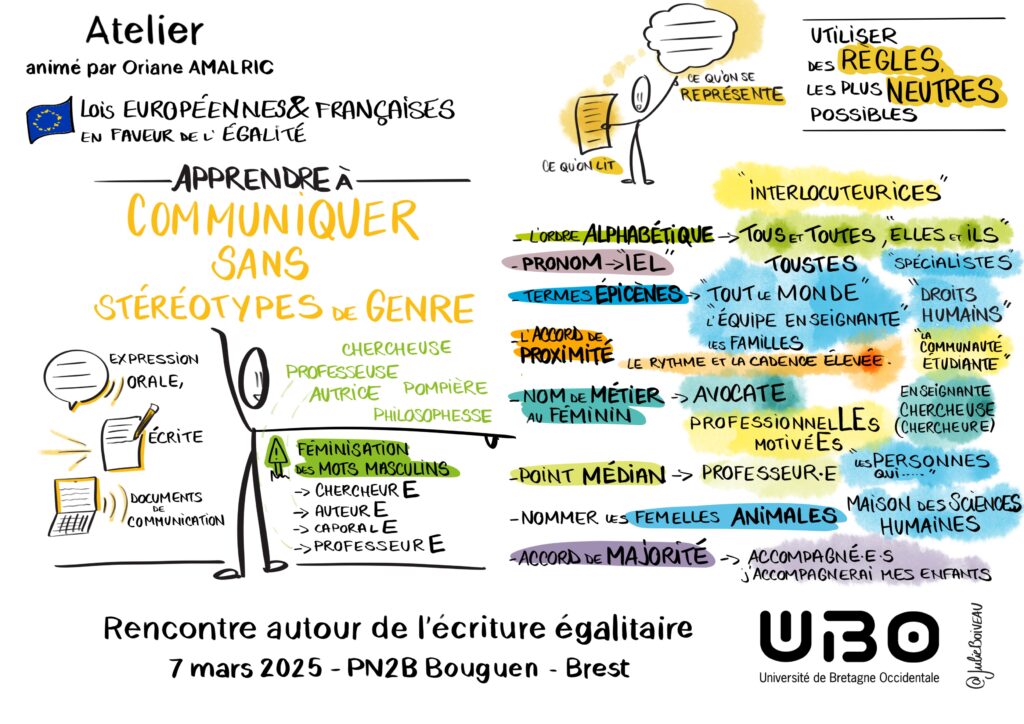 Atelier
animé par Oriane AMALRIC
LOIS EUROPÉENNES & FRANÇAISES
EN FAVEUR DE L'ÉGALITÉ
APPRENDRE À
COMMUNIQUER
SANS
STÉRÉOTYPES DE GENRE
EXPRESSION
ORALE,
ÉCRITE
DOCUMENTS
DE COMMUNICATION
CHERCHEUSE
PROFESSEUSE
AUTRICE
POMPIÈRE
PHILOSOPHESSE
FÉMINISATION
DES MOTS MASCULINS
-> CHERCHEURE
-> AUTEURE
-> CAPORALE
-> PROFESSEURE
CE QU'ON SE
REPRÉSENTE
CE QU'ON LIT
UTILISER
DES RÈGLES,
LES PLUS NEUTRES
POSSIBLES
"INTERLOCUTEURICES"
- L'ORDRE ALPHABÉTIQUE -> TOUS ET TOUTES, "ELLES ET ILS"
- PRONOM -> "IEL" TOUSTES "SPÉCIALISTES"
- TERMES ÉPICÈNES -> "TOUT LE MONDE" "DROITS
HUMAINS"
L'ÉQUIPE ENSEIGNANTE"
LES FAMILLES
- L'ACCORD DE
PROXIMITÉ
LE RYTHME ET LA CADENCE ÉLEVÉE.
"LA
COMMUNAUTÉ
ÉTUDIANTE"
- NOM DE MÉTIER -> AVOCATE
AU FÉMININ
ENSEIGNANTE
CHERCHEUSE
(CHERCHEURE)
PROFESSIONNELLES
MOTIVÉES
- POINT MÉDIAN -> PROFESSEUR·E
"LES PERSONNES
QUI....."
- NOMMER LES FEMELLES ANIMALES
MAISON DES SCIENCES
HUMAINES
- ACCORD DE MAJORITÉ -> ACCOMPAGNÉ·E·S
J'ACCOMPAGNERAI MES ENFANTS
Rencontre autour de l'écriture égalitaire
7 mars 2025 - PN2B Bouguen - Brest
UBO
Université de Bretagne Occidentale
@JulieBOIVEAU